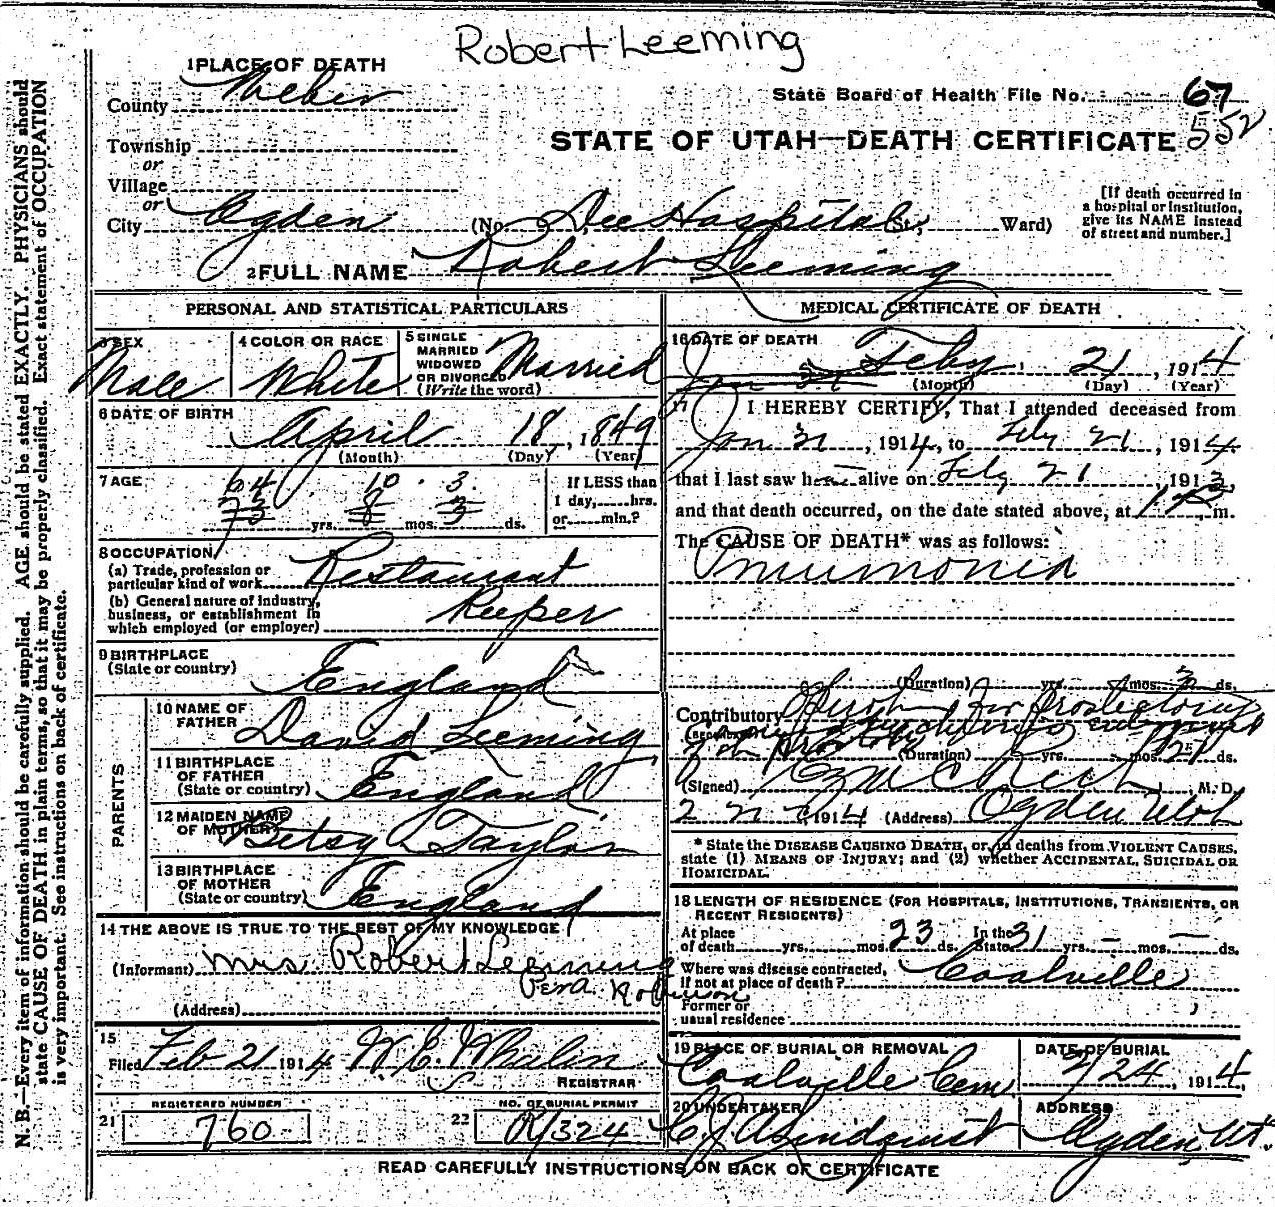 Robert Leeming
1 PLACE OF DEATH
County Weber
State Board of Health File No. 67
552
Township
or
Village
or
STATE OF UTAH—DEATH CERTIFICATE
City Ogden (No. Dee Hospital St.; Ward)
[If death occurred in
a hospital or institution,
give its NAME instead
of street and number.]
2 FULL NAME Robert Leeming
PERSONAL AND STATISTICAL PARTICULARS
3 SEX Male
4 COLOR OR RACE White
5 SINGLE
MARRIED
WIDOWED
OR DIVORCED
(Write the word) Married
6 DATE OF BIRTH
April 18, 1849
(Month) (Day) (Year)
7 AGE
64 10 3
73 yrs. 8 mos. 3 ds.
If LESS than
1 day, hrs.
or min.?
8 OCCUPATION
(a) Trade, profession or
particular kind of work Restaurant
(b) General nature of industry,
business, or establishment in
which employed (or employer) Keeper
9 BIRTHPLACE
(State or country) England
PARENTS
10 NAME OF
FATHER David Leeming
11 BIRTHPLACE
OF FATHER
(State or country) England
12 MAIDEN NAME
OF MOTHER Betsy Taylor
13 BIRTHPLACE
OF MOTHER
(State or country) England
14 THE ABOVE IS TRUE TO THE BEST OF MY KNOWLEDGE
(Informant) Mrs Robert Leeming
(Address)
15
Filed Feb 21 1914 W. E. Whalen
REGISTRAR
21 REGISTERED NUMBER
760
22 NO. OF BURIAL PERMIT
R/324
MEDICAL CERTIFICATE OF DEATH
16 DATE OF DEATH
Jan 31 Feby 21, 1914
(Month) (Day) (Year)
17 I HEREBY CERTIFY, That I attended deceased from
Jan 31, 1914, to Feby 21, 1914
that I last saw h alive on Feby 21, 1913,
and that death occurred, on the date stated above, at m.
The CAUSE OF DEATH* was as follows:
Pnumonia
(Duration) yrs. mos. 3 ds.
Contributory
(Duration) yrs. mos. ds.
(Signed) M. D.
1914 (Address) Ogden Utah
* State the DISEASE CAUSING DEATH, or, in deaths from VIOLENT CAUSES,
state (1) MEANS OF INJURY; and (2) whether ACCIDENTAL, SUICIDAL OR
HOMICIDAL.
18 LENGTH OF RESIDENCE (FOR HOSPITALS, INSTITUTIONS, TRANSIENTS, OR
RECENT RESIDENTS)
At place
of death yrs. mos. 23 ds. In the
State 31 yrs. – mos. – ds.
Where was disease contracted,
if not at place of death? Coalville
Former or
usual residence
19 PLACE OF BURIAL OR REMOVAL
Coalville Cem.
DATE OF BURIAL
2/24, 1914,
20 UNDERTAKER
C. J. A. Lindquist
ADDRESS
Ogden, Ut.
READ CAREFULLY INSTRUCTIONS ON BACK OF CERTIFICATE
N. B.—Every item of information should be carefully supplied. AGE should be stated EXACTLY. PHYSICIANS should
state CAUSE OF DEATH in plain terms, so that it may be properly classified. Exact statement of OCCUPATION
is very important. See instructions on back of certificate.